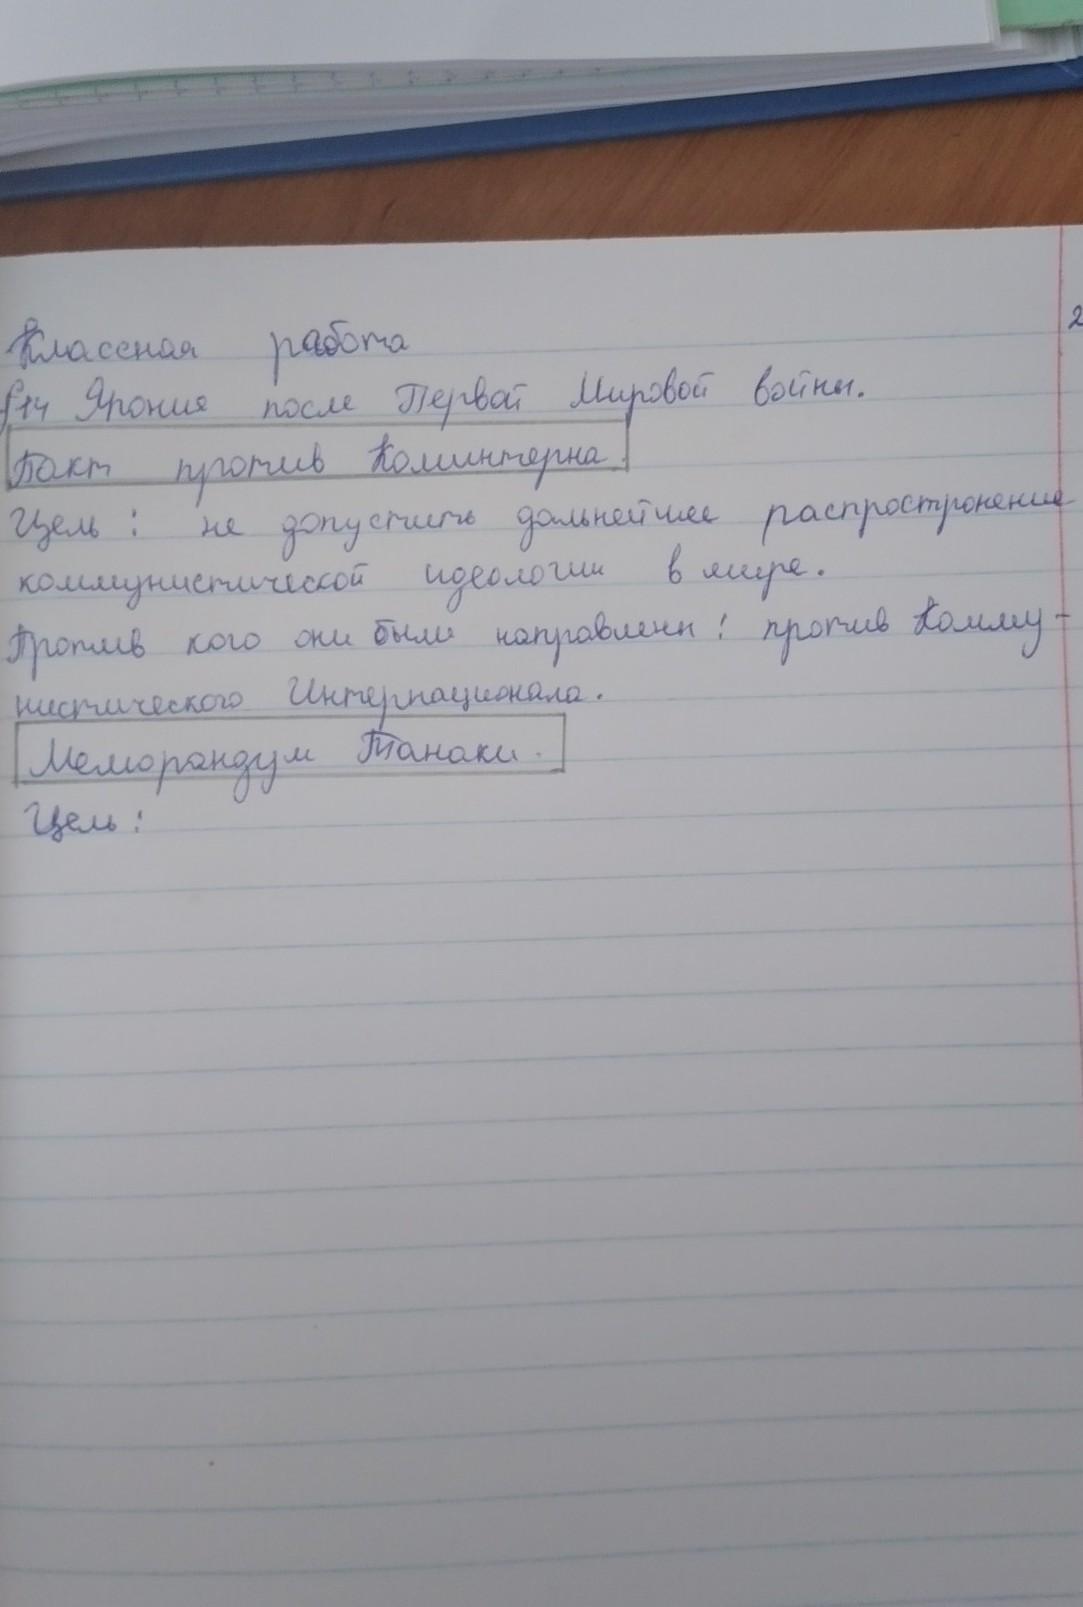 Классная работа
2
§14 Япония после Первой Мировой войны.
Пакт против Коминтерна.
Цель: не допустить дальнейшее распростронение
коммунистической идеологии в мире.
Против кого они были направлены: против Комму-
нистического Интернационала.
Меморандум Танаки.
Цель: